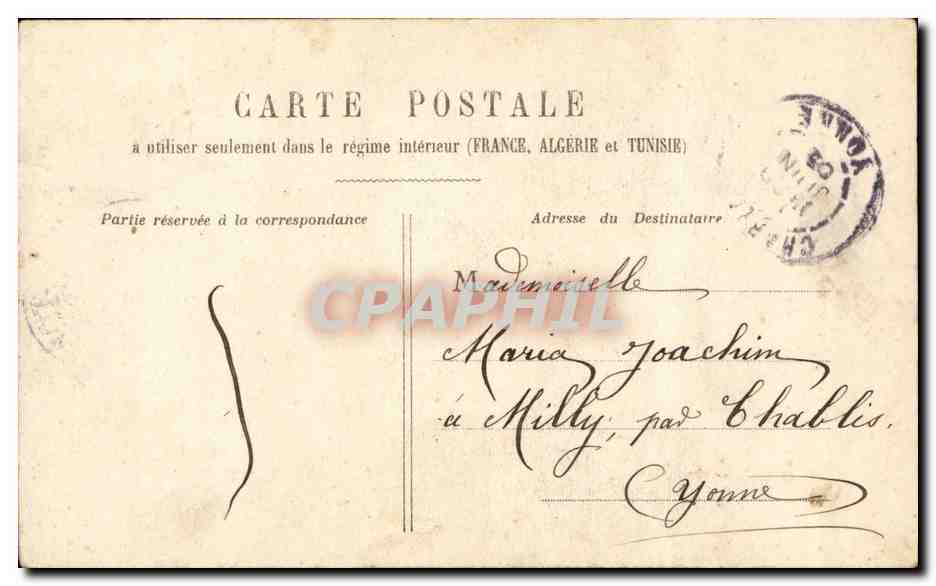 CARTE POSTALE
à utiliser seulement dans le régime intérieur (FRANCE, ALGÉRIE et TUNISIE)
Partie réservée à la correspondance
Adresse du Destinataire
Mademoiselle
Maria Joachim
à Milly, par Chablis.
(Yonne)
CPAPHIL
YONNE
JUIN
05